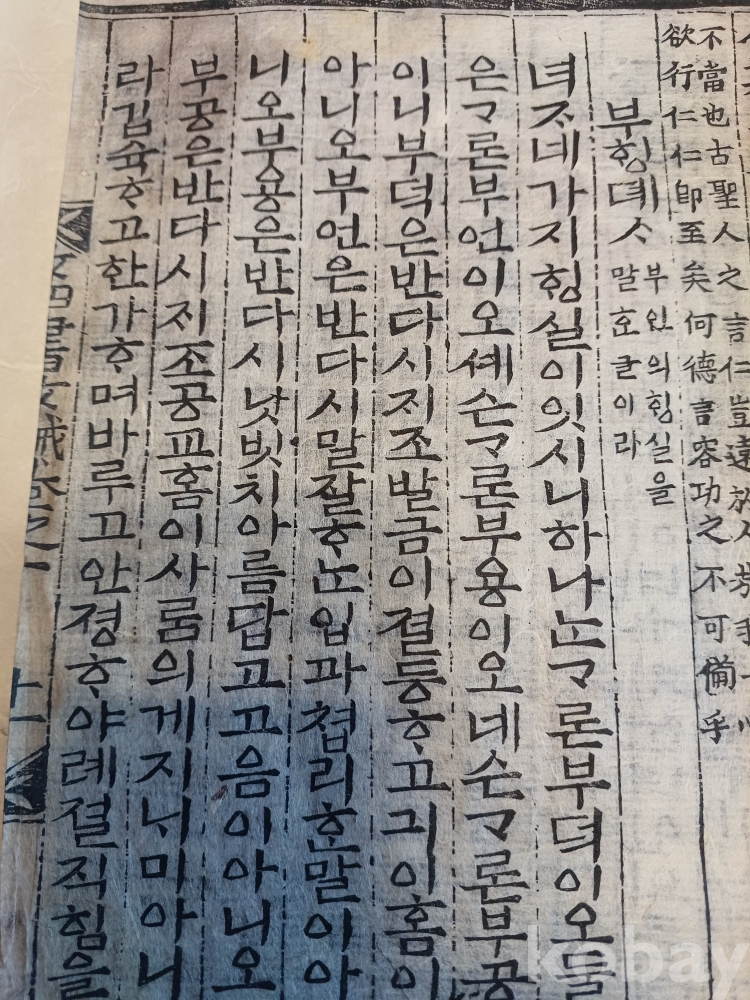 不當也古聖人之言仁豈遠
欲行仁仁卽至矣何德言容功之不可備乎
부힝뎨ᄉᆞ
부인의힝실을
말ᄒᆞᆫ글이라
녀ᄌᆞ네가지힝실이잇시니하나ᄂᆞᆫᄀᆞ론부덕이오둘
은ᄀᆞ론부언이오셰슨ᄀᆞ론부용이오네슨ᄀᆞ론부공
이니부덕은반다시지조발금이졀등ᄒᆞ고긔이홈이
아니오부언은반다시말잘ᄒᆞᄂᆞᆫ입과쳡리ᄒᆞᆫ말이아
니오부용은반다시낫빗치아름답고고음이아니오
부공은반다시지조공교홈이사룸의게지ᄂᆞ미아니
라김슉ᄒᆞ고한가ᄒᆞ며바루고안졍ᄒᆞ야례졀직힘을
女四書女誡卷之一
十一
kobay